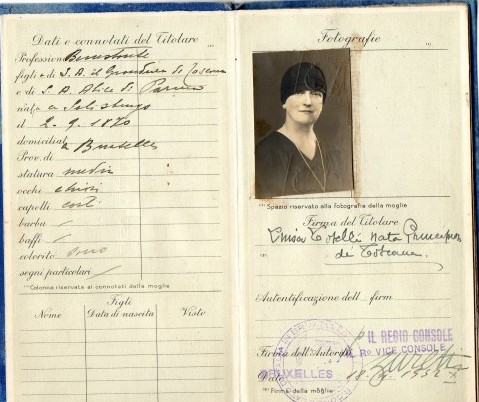 Dati e connotati del Titolare
Professione Benestante
figlia di S. A. il Granduca di Toscana
e di S. A. Alice di Parma
nata a Salisburgo
il 2. 9. 1870
domiciliata a Bruxelles
Prov. di
statura media
occhi chiari
capelli cast.
barba /
baffi /
colorito
segni particolari /
(1) Colonna riservata ai connotati della moglie
Figli
Nome Data di nascita Visto
Fotografie
(1) Spazio riservato alla fotografia della moglie
Firma del Titolare
Luisa Toselli nata Principessa
di Toscana.
Autentificazione dell firm
IL REGIO CONSOLE
Ro VICE CONSOLE
Firma dell'Autorità
BRUXELLES
Data 18
(1) Firma della moglie